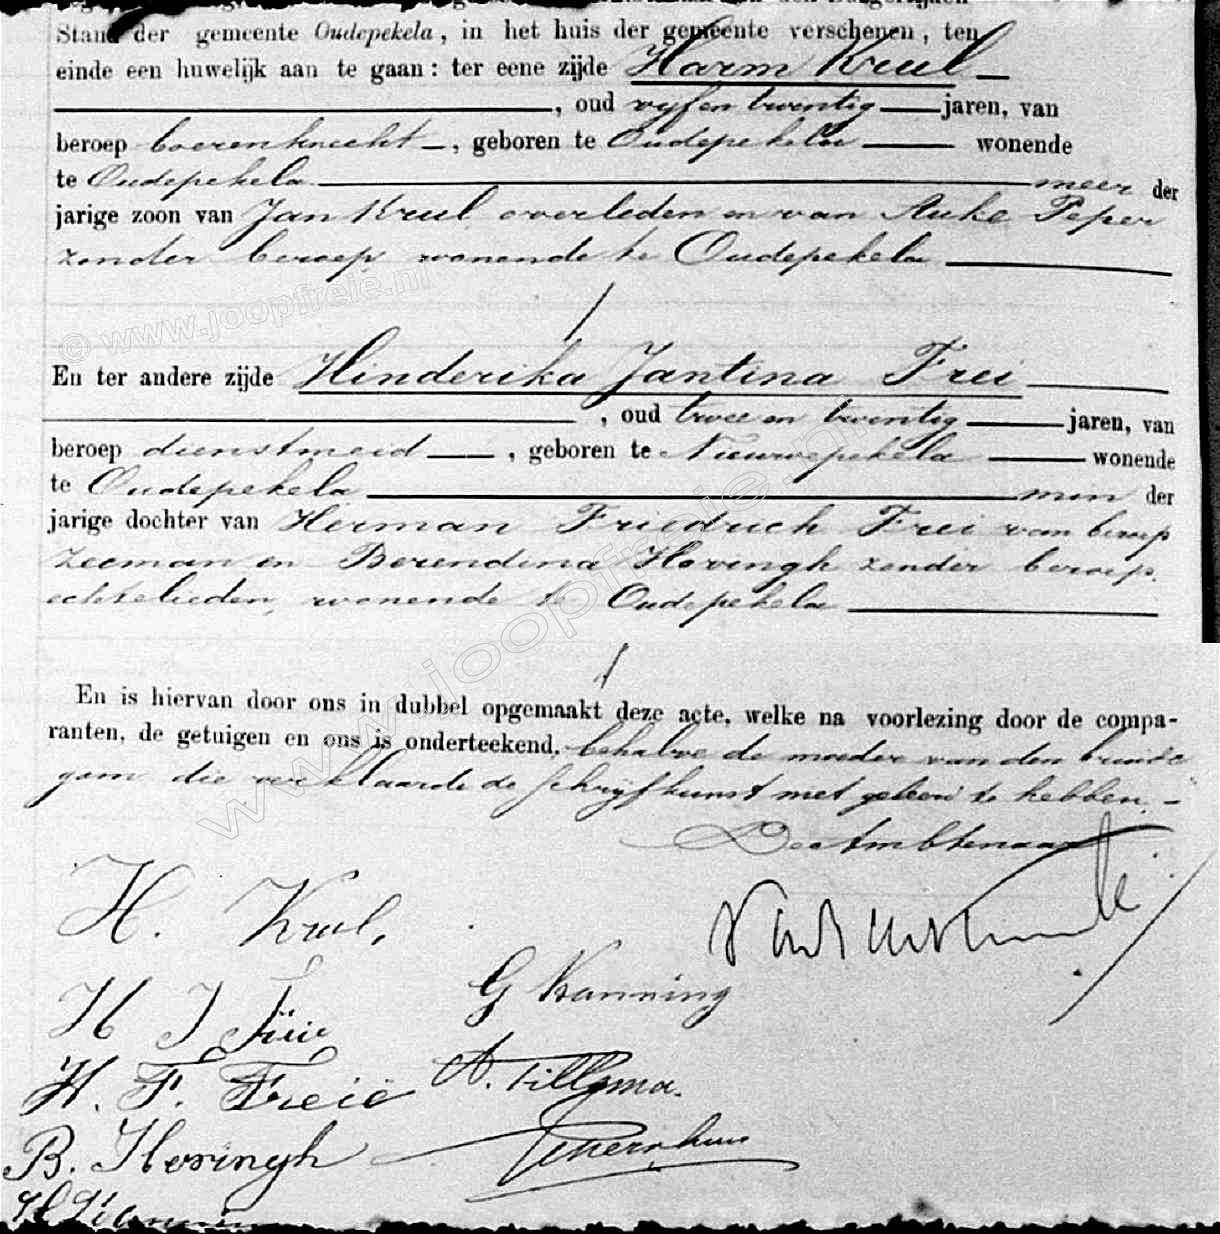 Stand der gemeente Oudepekela, in het huis der gemeente verschenen, ten
einde een huwelijk aan te gaan: ter eene zijde Harm Krul
, oud vijf en twintig jaren, van
beroep boerenknecht, geboren te Oudepekela wonende
te Oudepekela meer der
jarige zoon van Jan Krul overleden en van Auke Peper
zonder beroep wonende te Oudepekela
© www.joopfreie.nl
En ter andere zijde Hinderika Jantina Frei
, oud twee en twintig jaren, van
beroep dienstmeid, geboren te Nieuwepekela wonende
te Oudepekela min der
jarige dochter van Herman Friedrich Frei van beroep
zeeman en Berendina Hovingh zonder beroep.
echtelieden, wonende te Oudepekela
www.joopfreie.nl
En is hiervan door ons in dubbel opgemaakt deze acte, welke na voorlezing door de compa-
ranten, de getuigen en ons is onderteekend, behalve de moeder van den bruide
gom die verklaarde de schrijfkunst niet geleerd te hebben. -
De Ambtenaar
H. Krul,
H J Freie
G Kanning
H. F. Freië
A. Tillema.
B. Hovingh